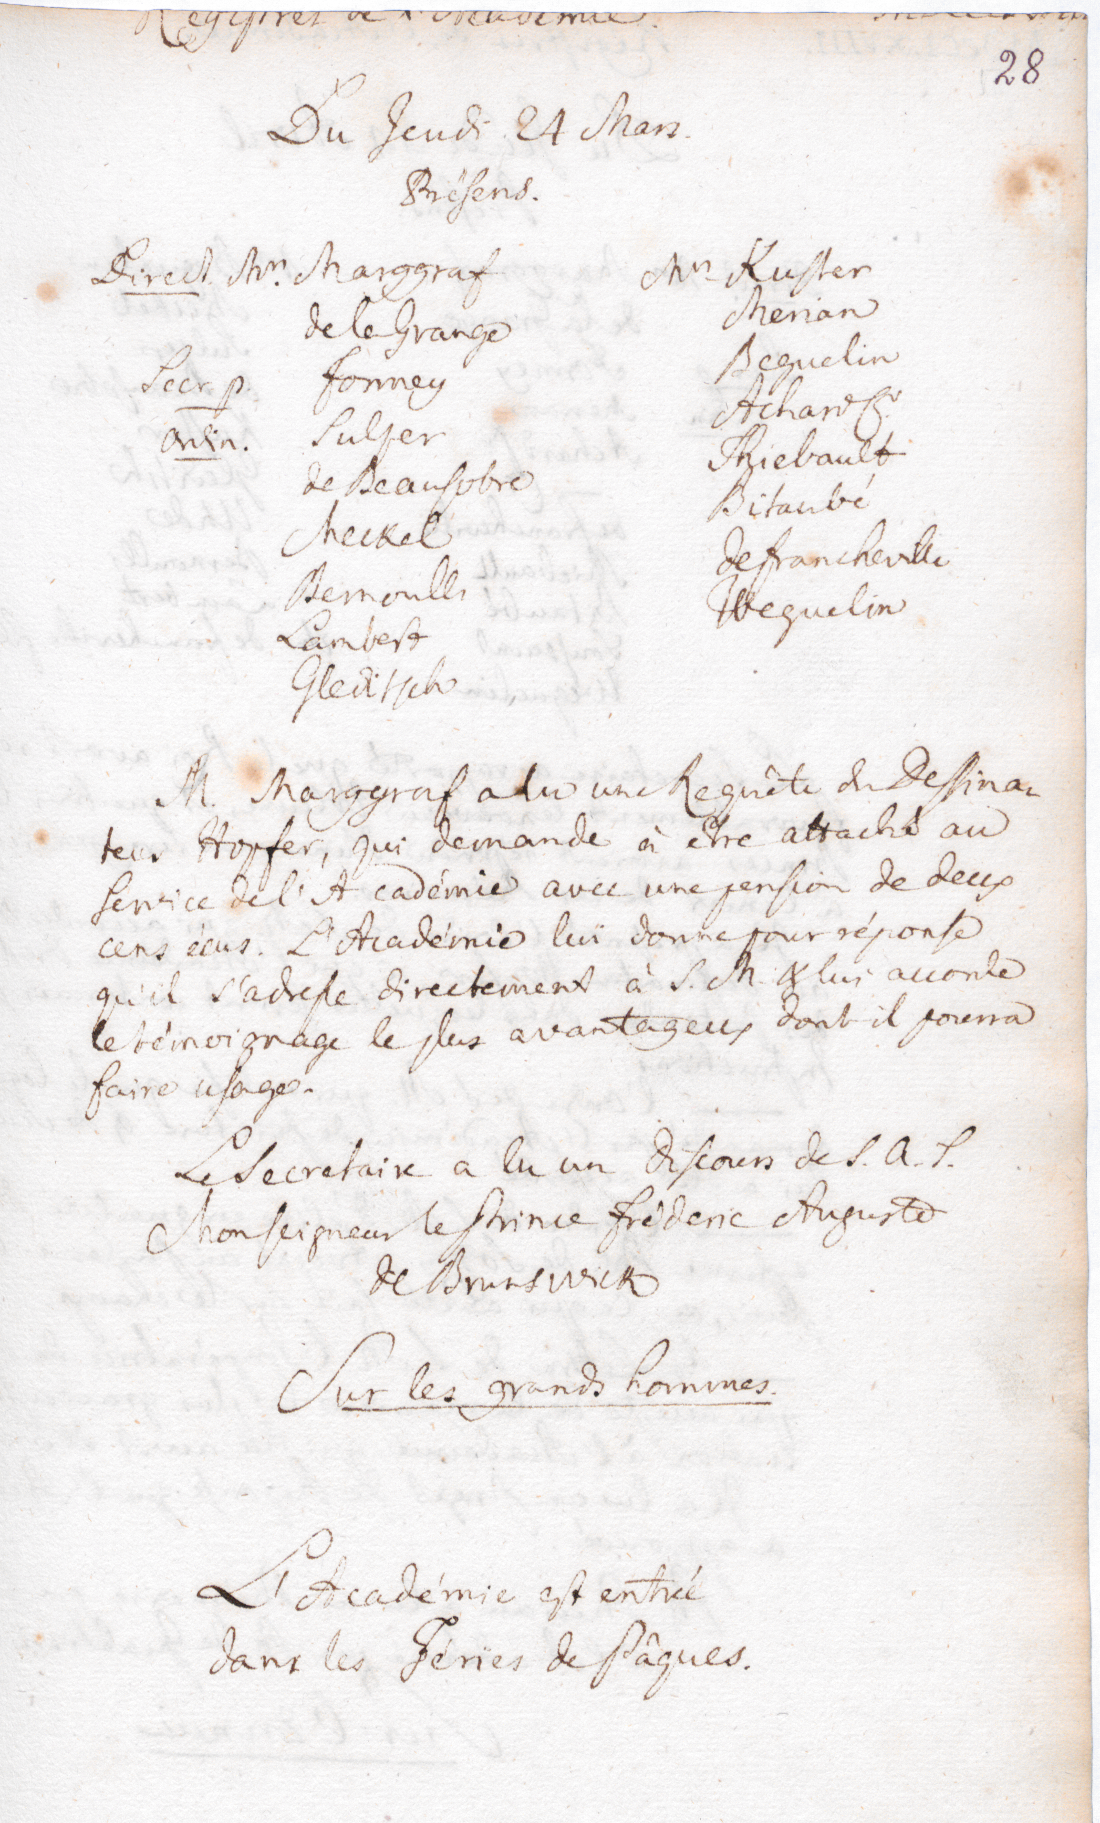 Registres de l'Academie.
28
Du Jeudi 24 Mars.
Présens.
Direct. Mrs. Marggraf
de la Grange
Secr. p. Formey
Ordin. Sulzer
de Beausobre
Meckel
Bernoulli
Lambert
Gleditsch
Mrs Kuster
Merian
Beguelin
Achard
Thiebault
Bitaubé
de francheville
Weguelin
M. Marggraf a lu une Requête du Dessina-
teur Hopfer, qui demande à être attaché au
service de l'Académie avec une pension de deux
cens écus. L'Académie lui donne pour réponse
qu'il s'adresse directement à S. M. & lui accorde
le témoignage le plus avantageux dont il pourra
faire usage.
Le Secretaire a lu un discours de S. A. S.
Monseigneur le Prince fréderic Auguste
de Brunswick
Sur les grands hommes.
L'Académie est entrée
dans les Féries de Pâques.